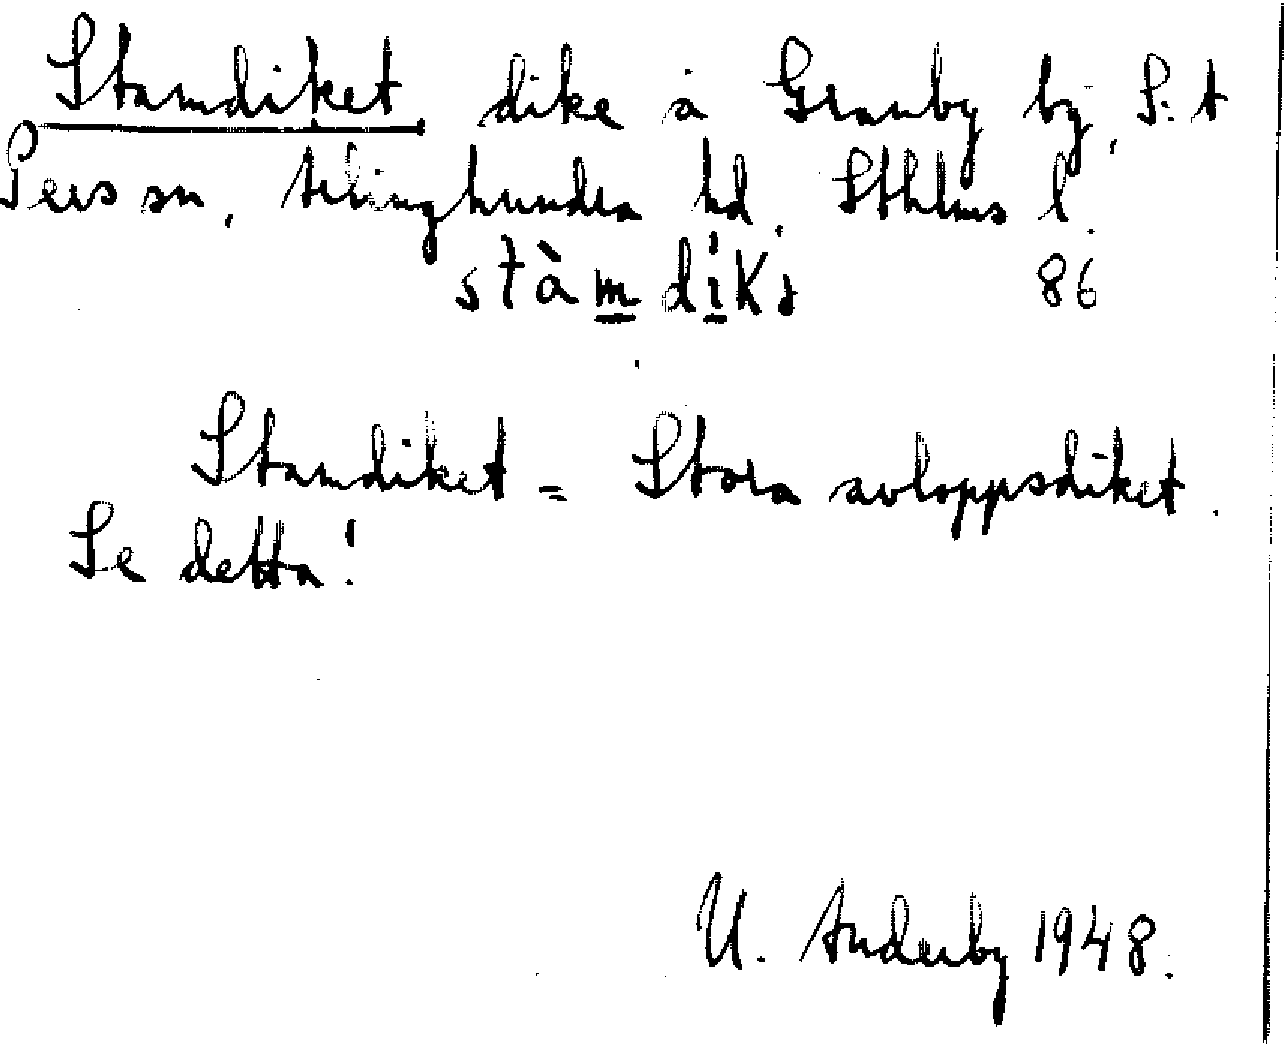 Stamdiket dike å Granby by, S:t
Pers sn, Ärlinghundra hd. Sthlms l.
stàmdikə 86
Stamdiket = Stora avloppsdiket.
Se detta!
U. Anderby 1948.